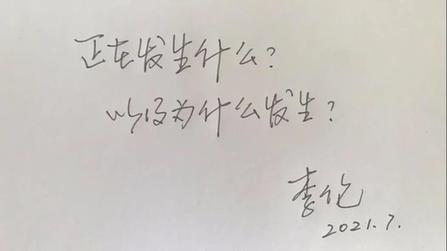 正在发生什么?
以及为什么发生?
李伦
2021.7.